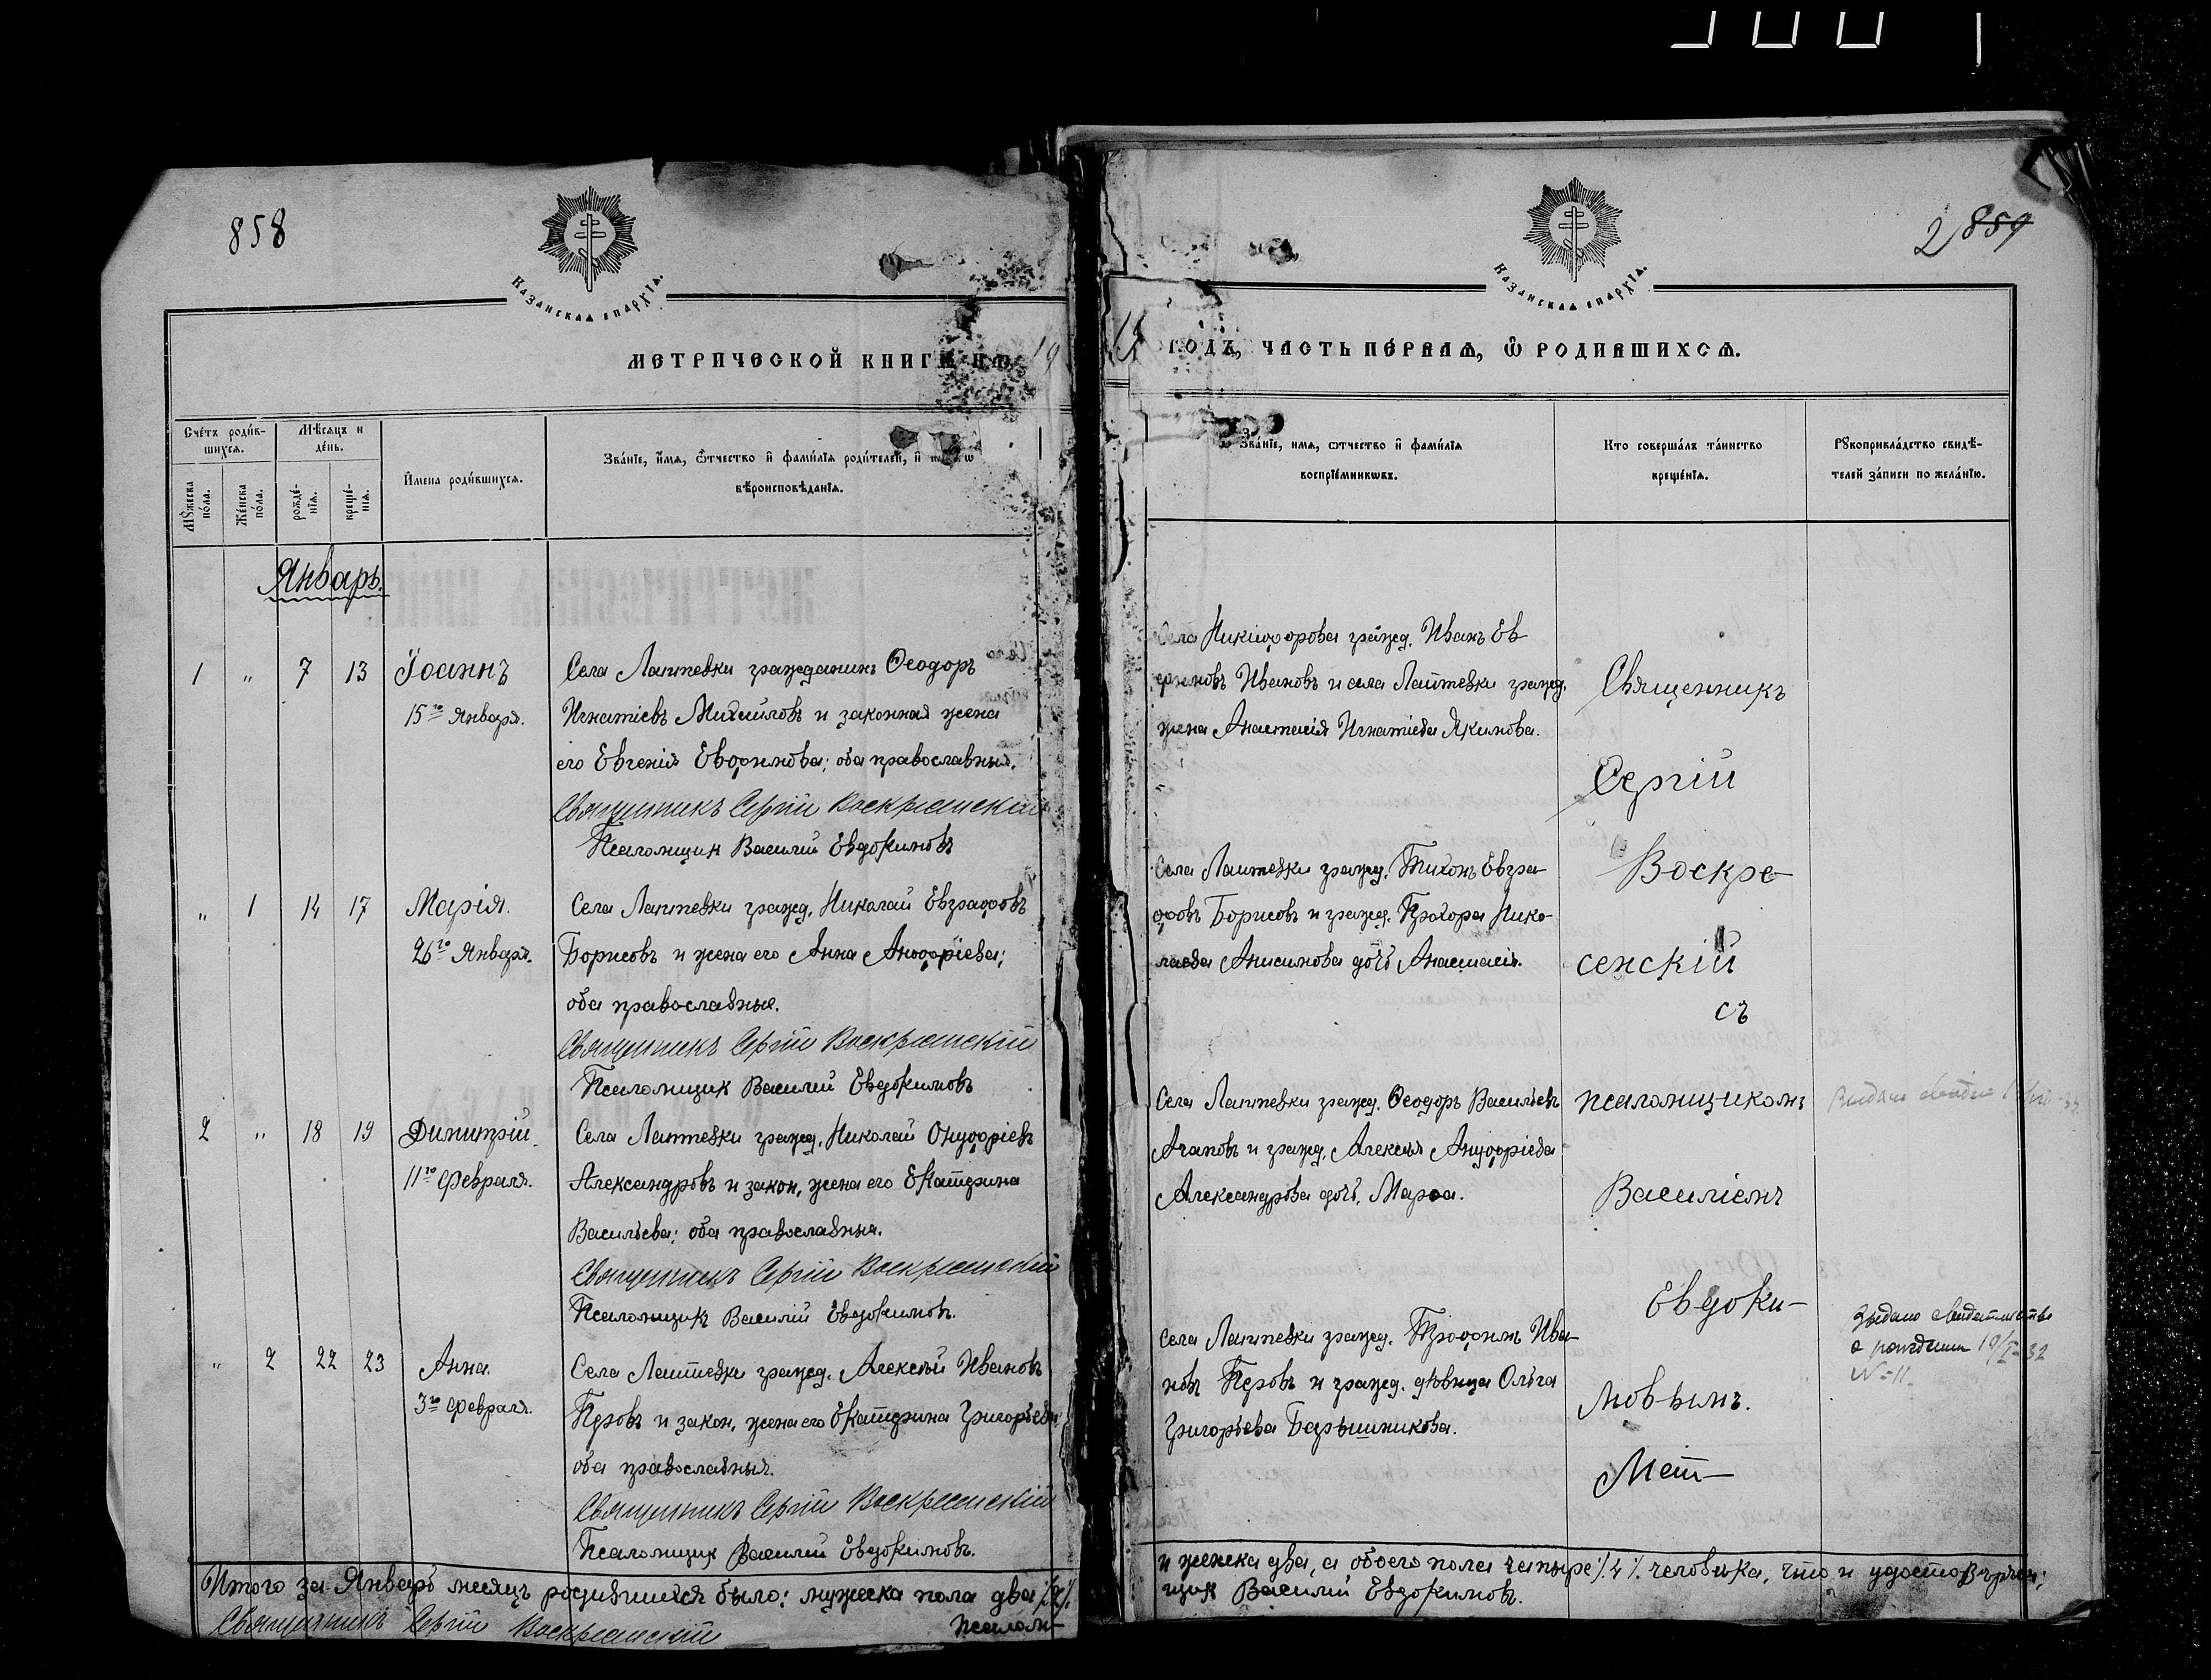 858
КАЗАНСКАѦ ЕПАРХІѦ.
МЕТРИЧЕСКОЙ КНИГИ НА 19
Счетъ родив-
шихсѧ.
Мѣсѧцъ и
день.
Мꙋжеска пола.
Женска пола.
рожде-
ніѧ.
креще-
ніѧ.
Имена родившихсѧ.
Званіе, имѧ, ѿчество и фамиліѧ родителей, и
вѣроисповѣданіѧ.
Январь.
1 " 7 13 Іоаннъ
15го Января.
Села Лаптевки гражданинъ Ѳеодоръ
Игнатіевъ Михайловъ и законная жена
его Евгенія Евѳимова; оба православные.
Священникъ Сергій Воскресенскій
Псаломщик Василій Евдокимовъ
" 1 14 17 Марія.
26го Января.
Села Лаптевки гражд. Николай Евграфовъ
Борисовъ и жена его Анна Ануфріева;
оба православные.
Священникъ Сергій Воскресенскій
Псаломщик Василій Евдокимовъ
2 " 18 19 Димитрій.
11го Февраля.
Села Лаптевки гражд. Николай Онуфріевъ
Александровъ и закон. жена его Екатерина
Васильева; оба православные.
Священникъ Сергій Воскресенскій
Псаломщикъ Василій Евдокимовъ.
" 2 22 23 Анна.
3го Февраля.
Села Лаптевки гражд. Алексѣй Ивановъ
Перовъ и закон. жена его Екатерина Григорьева
оба православные.
Священникъ Сергій Воскресенскій
Псаломщик Василій Евдокимовъ.
Итого за Январь месяцъ родившихся было: мужеска пола два /2/.
Священникъ Сергій Воскресенскій Псалом-
2 859
КАЗАНСКАѦ ЕПАРХІѦ.
ГОДЪ, ЧАСТЬ ПЕРВАѦ, Ѽ РОДИВШИХСѦ.
Званіе, имѧ, ѿчество и фамиліѧ
воспріемникѡвъ.
Кто совершалъ таинство
крещеніѧ.
Рꙋкоприкладство свидѣ-
телей записи по желанію.
Села Никифорова гражд. Иванъ Ев-
фимовъ Ивановъ и села Лаптевки гражд.
жена Анастасія Игнатіева Якимова.
Села Лаптевки гражд. Тихонъ Евгра-
фовъ Борисовъ и гражд. Прохора Нико-
лаева Анисимова дочь Анастасія.
Села Лаптевки гражд. Ѳеодоръ Васильевъ
Агаповъ и гражд. Алексѣя Ануфріева
Александрова дочь, Марѳа.
Села Лаптевки гражд. Трофимъ Ива-
новъ Перовъ и гражд. дѣвица Ольга
Григорьева Барышникова.
Священникъ
Сергій
Воскре-
сенскій
съ
псаломщикомъ
Василіемъ
Евдоки-
мовымъ.
Выдано свидетельство
о рождении 19/I-32
№-11.
и женска два, а обоего пола четыре /4/ человѣка, что и удостовѣряемъ;
щик Василій Евдокимовъ.